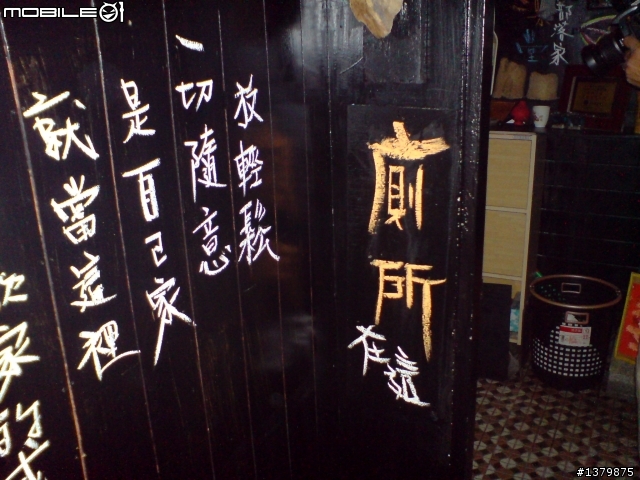 MOBILE01
廁所
在這
放輕鬆
一切隨意
是自己家
就當這裡
#1379875